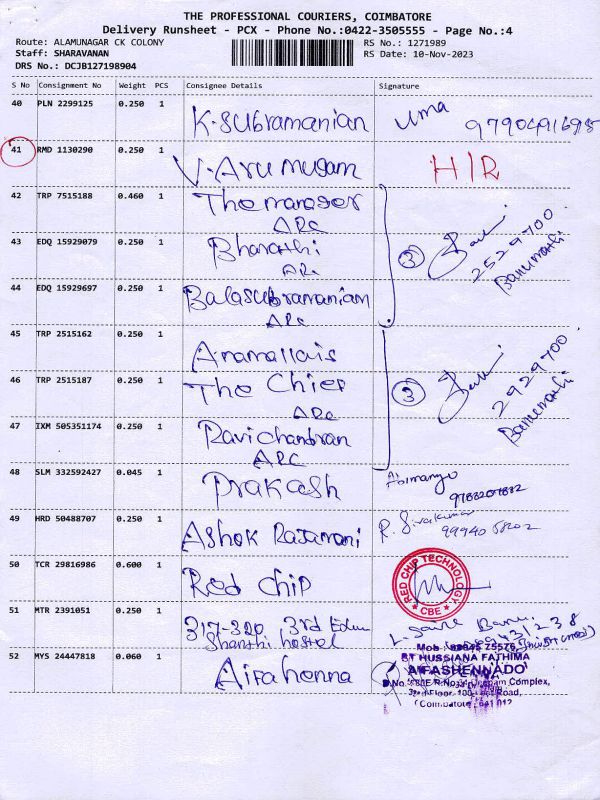 THE PROFESSIONAL COURIERS, COIMBATORE
Delivery Runsheet - PCX - Phone No.:0422-3505555 - Page No.:4
Route: ALAMUNAGAR CK COLONY
RS No.: 1271989
Staff: SHARAVANAN
RS Date: 10-Nov-2023
DRS No.: DCJB127198904
S No Consignment No Weight PCS Consignee Details Signature
40 PLN 2299125 0.250 1 K.Subramanian Uma 9790491698
41 RMD 1130290 0.250 1 V.Arumugam H/R
42 TRP 7515188 0.460 1 The manager
ARC
43 EDQ 15929079 0.250 1 Bharathi
ARC
3
2529700
Banumathi
44 EDQ 15929697 0.250 1 Balasubramaniam
ARC
45 TRP 2515162 0.250 1 Anamallais
46 TRP 2515187 0.250 1 The Chief
ARC
3
2929700
Banumathi
47 IXM 505351174 0.250 1 Ravichandran
ARC
48 SLM 332592427 0.045 1 Prakash
49 HRD 50488707 0.250 1 Ashok Rajamani R. Sivakumar
99940 58202
50 TCR 29816986 0.600 1 Red chip
RED CHIP TECHNOLOGY
CBE
51 MTR 2391051 0.250 1 317-320 3rd
Shanthi hostel
52 MYS 24447818 0.060 1
HUSSIANA FATHIMA
Complex,
Road,